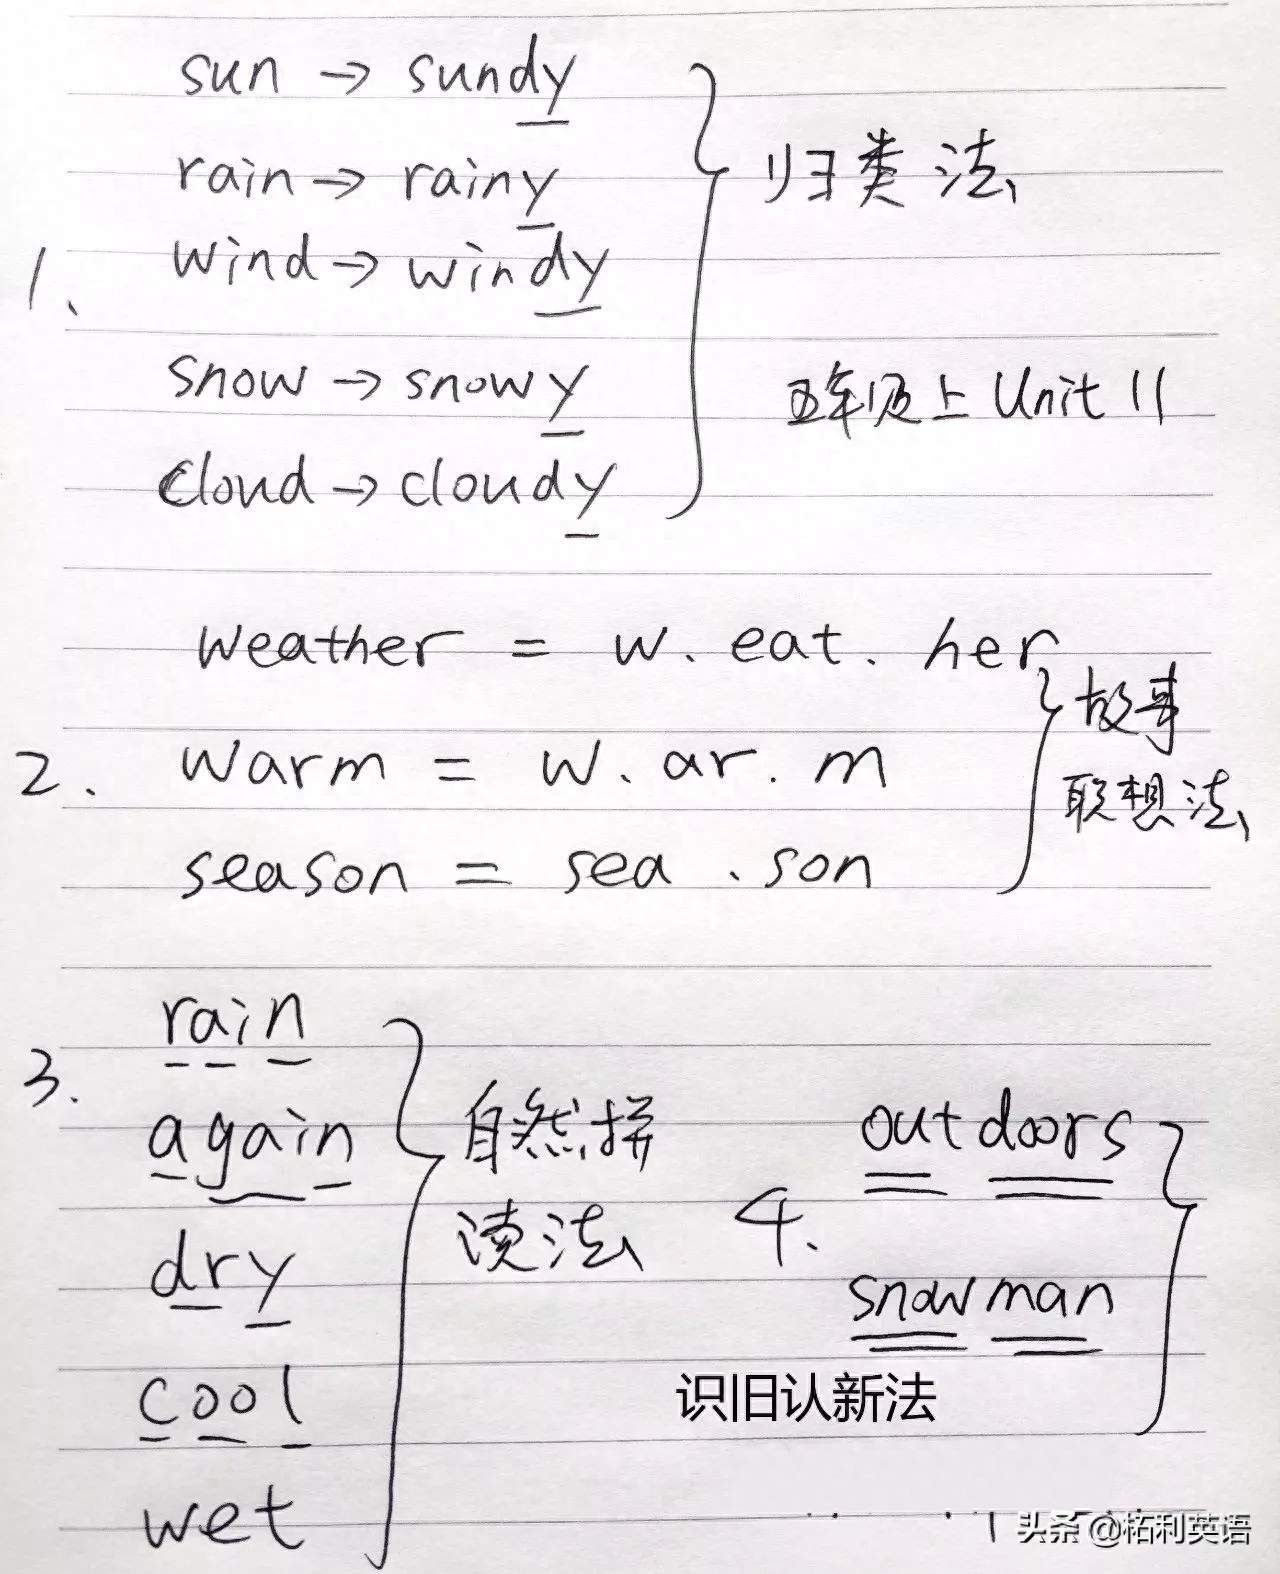 sun → sundy
rain → rainy
归类法
1、
wind → windy
snow → snowy
五年级上 Unit 11
cloud → cloudy
weather = w. eat. her
故事
2. warm = w. ar. m
联想法
season = sea . son
rain
3.
again
自然拼
outdoors
dry
读法
4.
snowman
cool
识旧认新法
wet
头条 @柘利英语